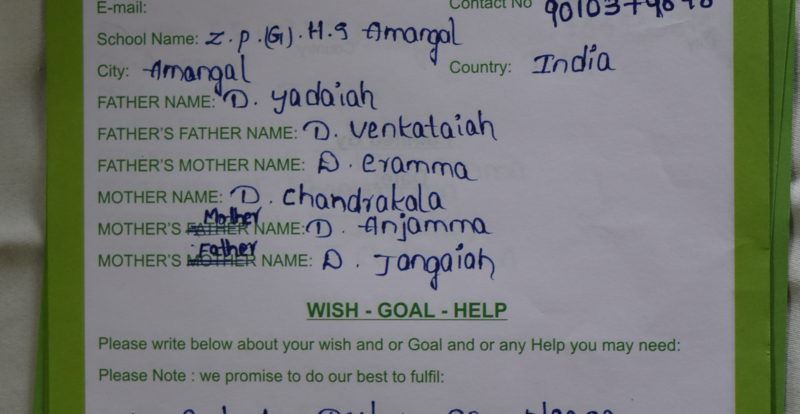 E-mail:
Contact No
School Name: Z.P.(G).H.S Amangal
City: Amangal Country: India
FATHER NAME: D. yadaiah
FATHER'S FATHER NAME: D. venkataiah
FATHER'S MOTHER NAME: D. eramma
MOTHER NAME: D. chandrakala
MOTHER'S FATHER Mother NAME: D. Anjamma
MOTHER'S MOTHER Father NAME: D. Jangaiah
WISH - GOAL - HELP
Please write below about your wish and or Goal and or any Help you may need:
Please Note : we promise to do our best to fulfil: